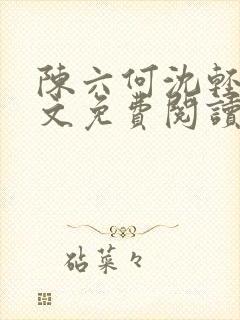 陳六何沈輕
文免費閱讀
砧菜々